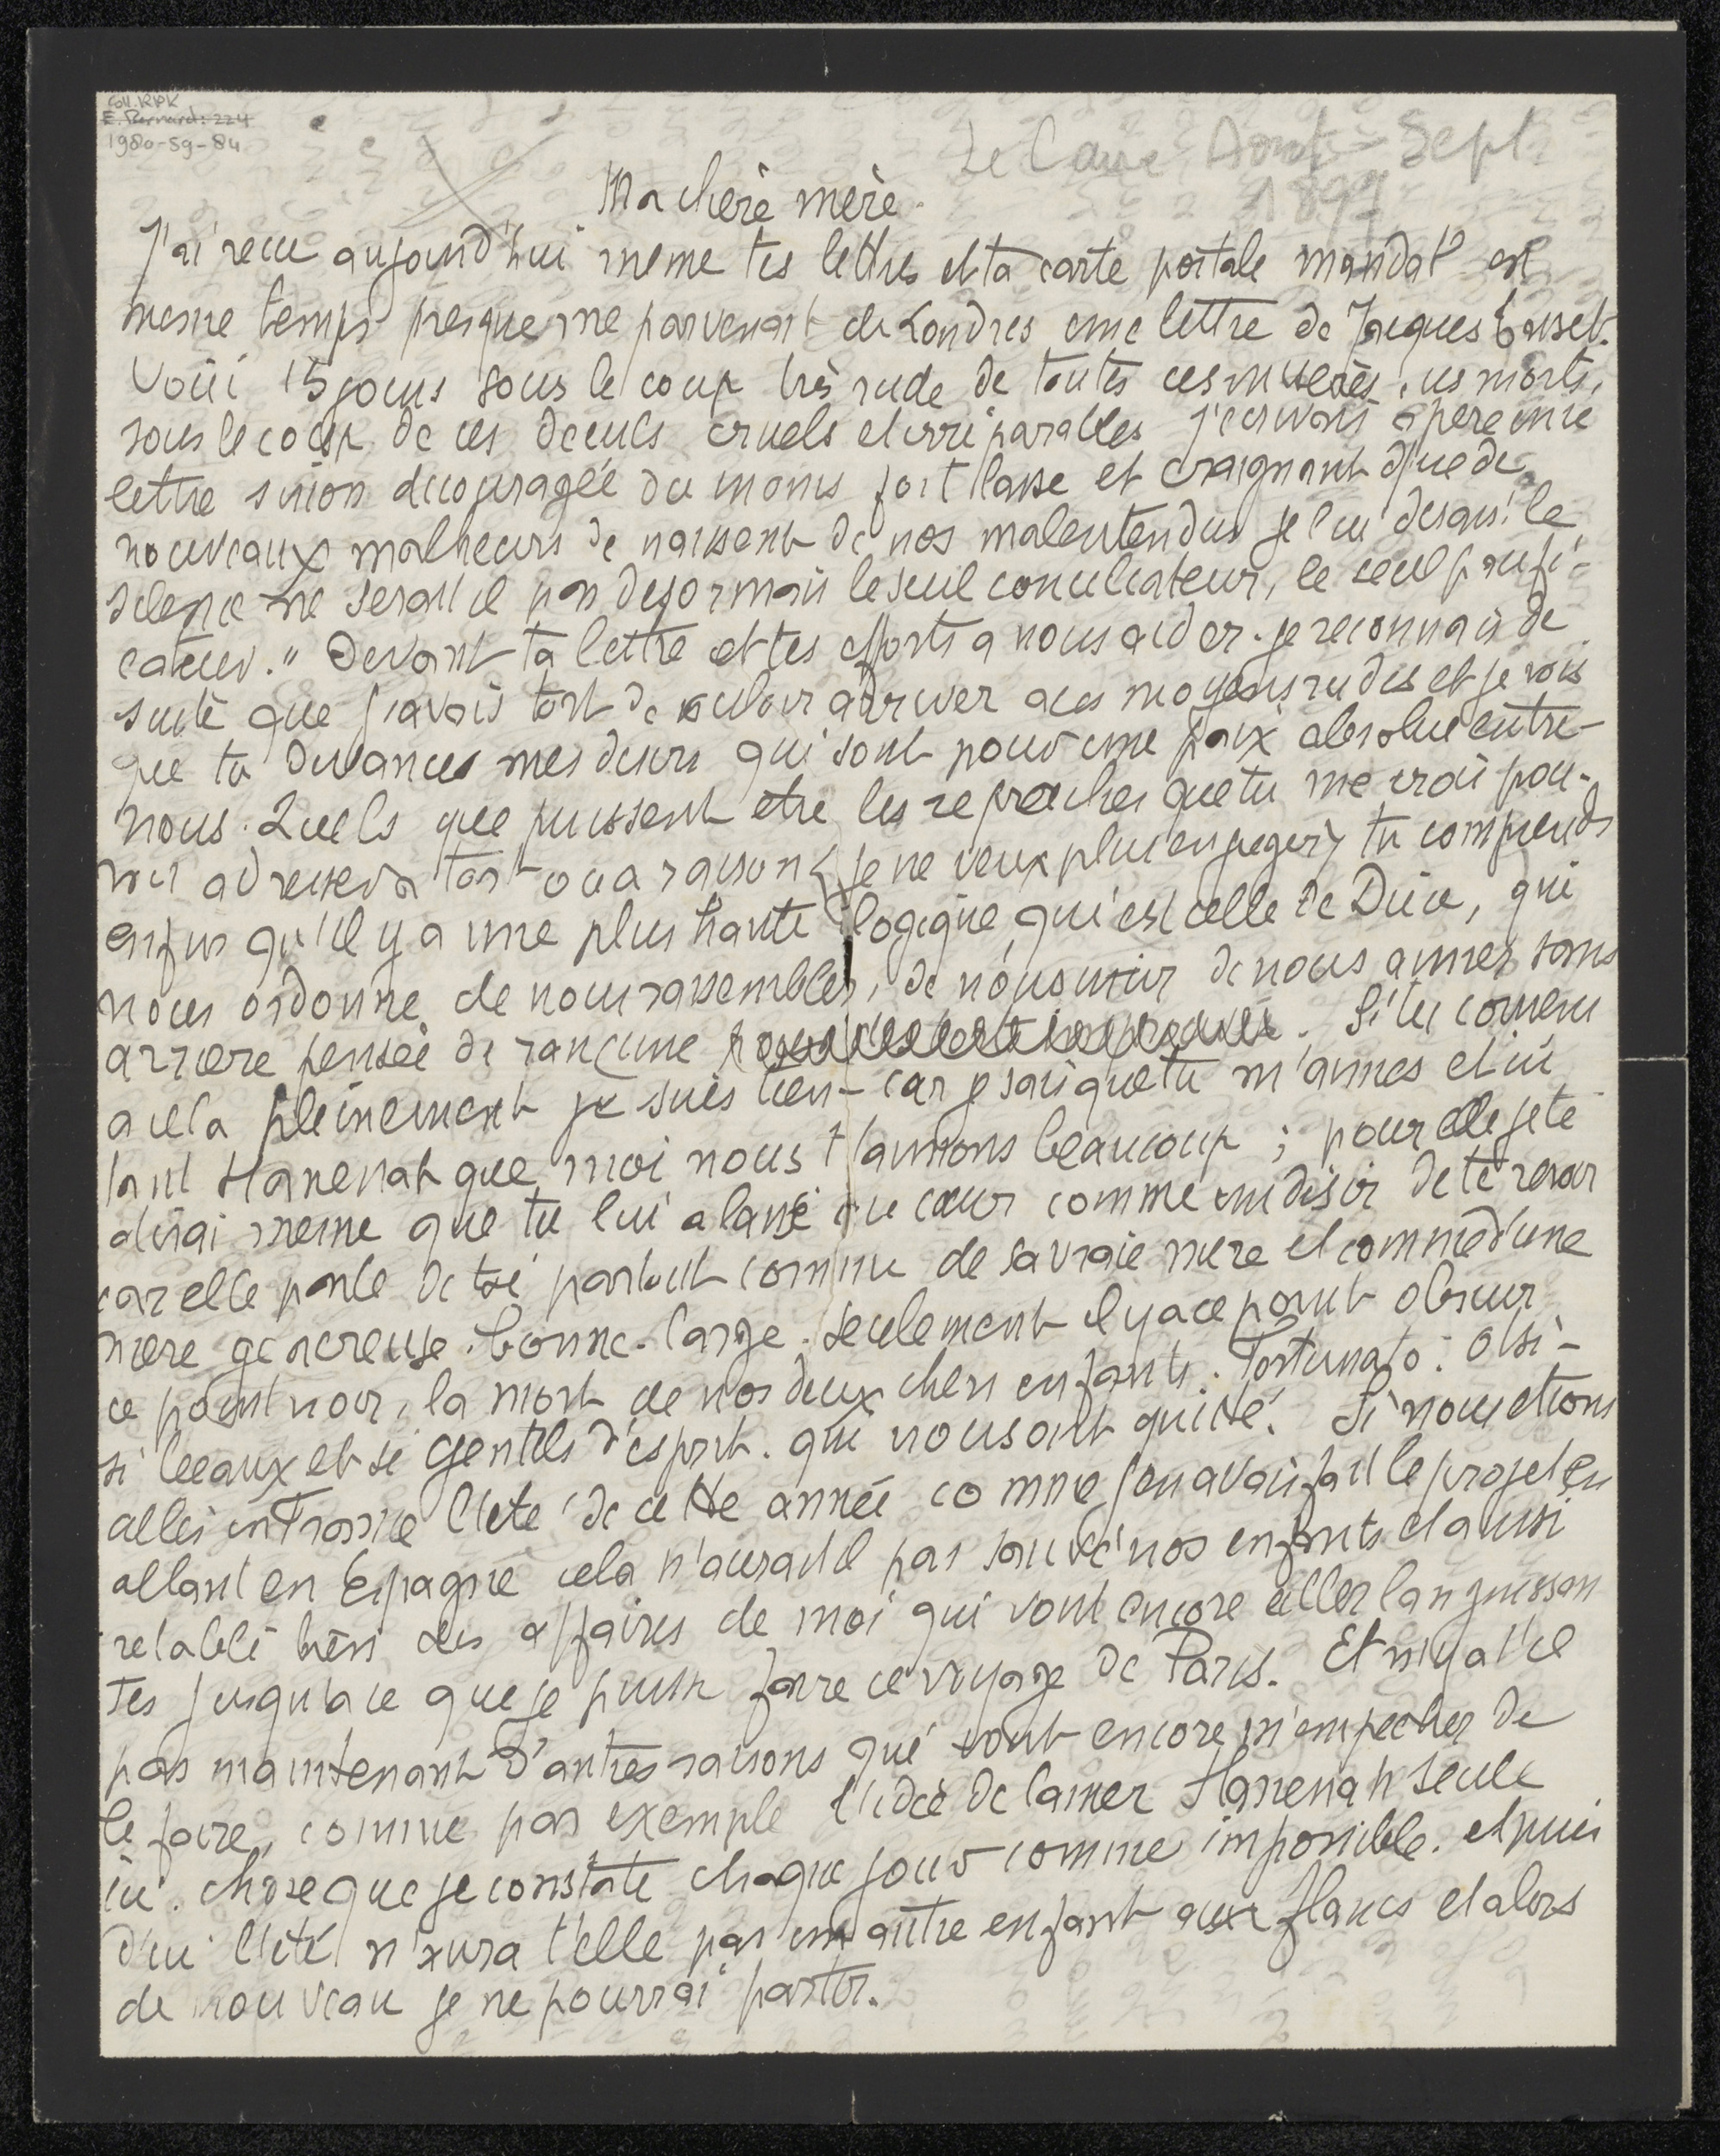 Coll. RPK
E. Bernard: 224
1980-59-84
Le Caire Aout-Sept
1897
Ma chère mère.
J'ai recu aujourd'hui meme tes lettres et ta carte postale mandat et
meme temps presque me parvenait de Londres une lettre de Jacques
Voici 15 jours sous le coup très rude de toutes ces miserès, ces morts,
sous le coup de ces deuils cruels et irréparables j'ecrivais a pere une
lettre sinon decouragée du moins fort lasse et craignant que de
nouveaux malheurs de naissent de nos malentendus je lui disais: le
silence ne serait il pas desormais le seul conciliateur, le seul pacifi-
cateur." Devant ta lettre et tes efforts a nous aider. je reconnais de
suite que j'avais tort de vouloir arriver a ces moyens rudes et je vois
que tu devances mes desirs qui sont pour une paix absolue entre-
nous. Quels que puissent etre les reproches que tu me crois pou-
voir adresser a tort ou a raison je ne veux plus en juger, tu comprends
enfin qu'il y a une plus haute logique qui est celle de Dieu, qui
nous ordonne de nous rassembler, de nous unir de nous aimer sans
arriere pensée de rancune. Si tu consens
a cela pleinement je suis tien- car je sais que tu m'aimes et ici
tant Hanenah que moi nous t'aimons beaucoup ; pour elle je te
dirai meme que tu lui a laissé au cœur comme un desir de te revoir
car elle parle de toi partout comme de sa vraie mere et comme d'une
mere genereuse. bonne. large. seulement il y a ce point obscur
ce point noir, la mort de nos deux chers enfants. Fortunato. O si-
si beaux et si gentils d'esprit. qui nous ont quitté. Si nous etions
allés en France l'eté de cette année comme j'en avais fait le projet en
allant en Espagne cela n'aurait il pas sauvé nos enfants et aussi
retabli bien des affaires de moi qui vont encore aller languissan
tes jusqu'a ce que je puisse faire ce voyage de Paris. Et n'y a t'il
pas maintenant d'autres raisons qui vont encore m'empecher de
le faire, comme par exemple l'idée de laisser Hanenah seule
ici. chose que je constate chaque jour comme impossible. et puis
d'ici l'eté n'aura t'elle pas un autre enfant aux flancs et alors
de nouveau je ne pourrai partir.